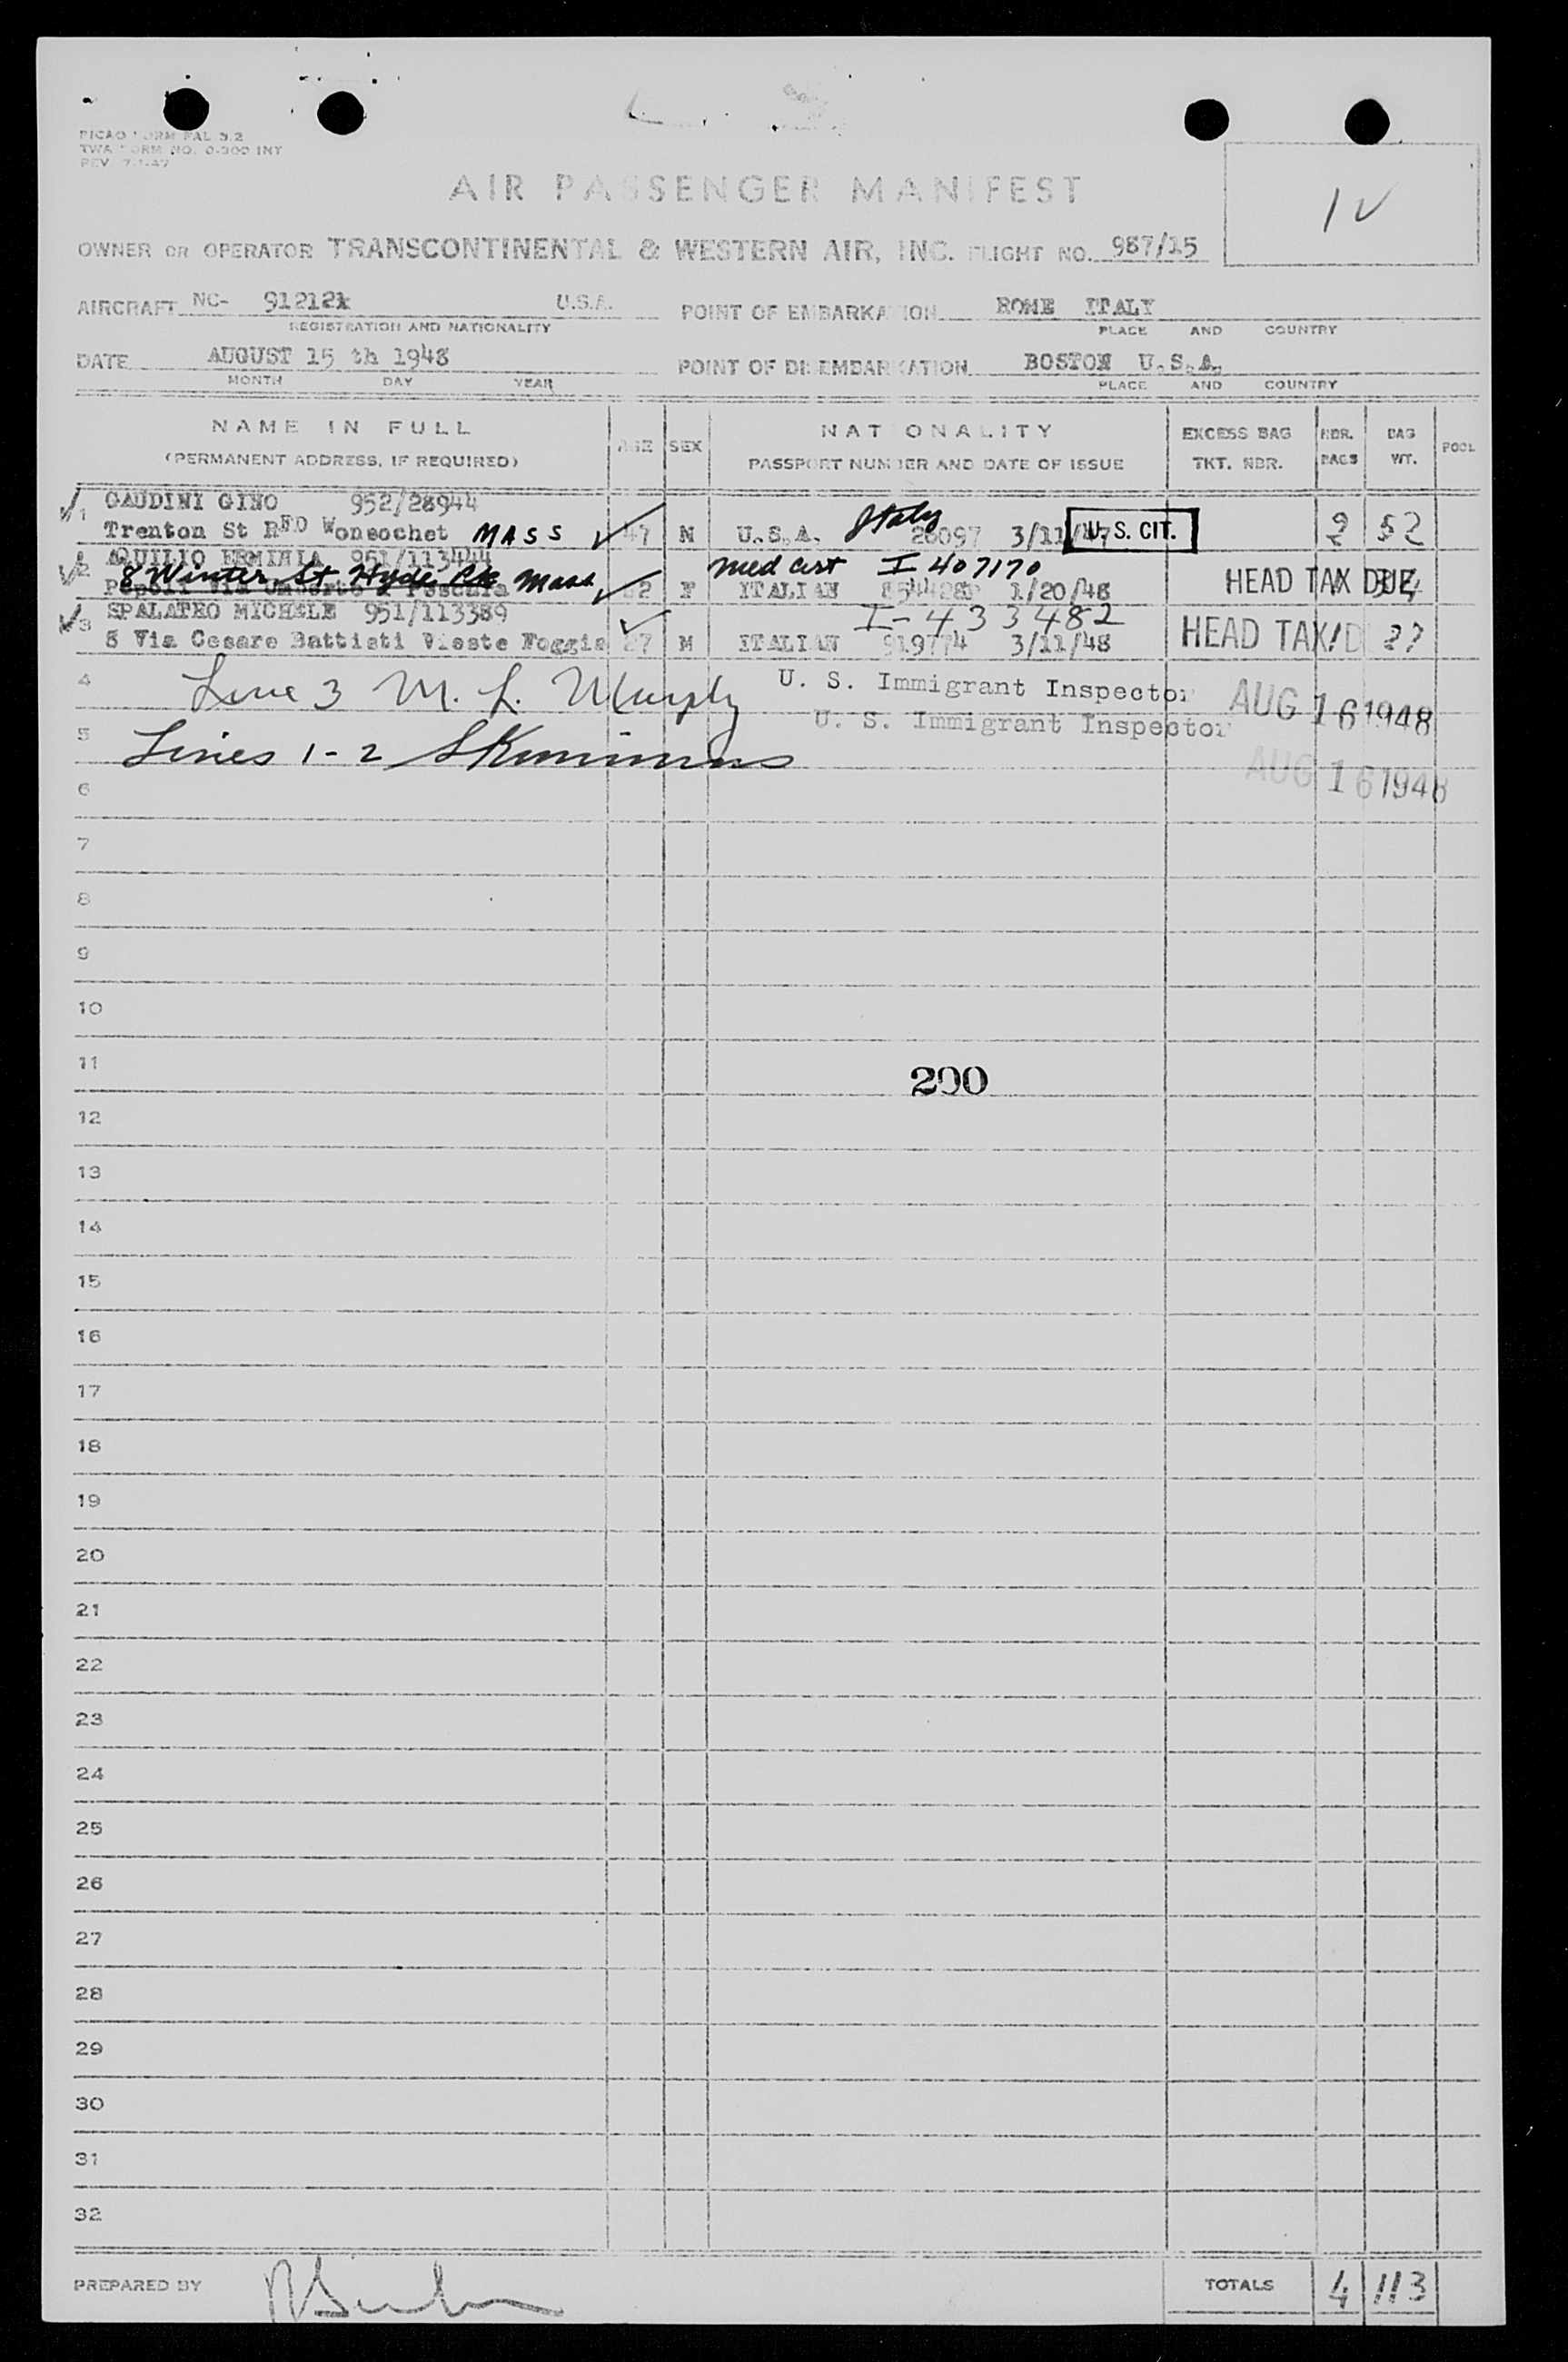 PICAO FORM PAL 3.2
TWA FORM NO. 0-300 INT
REV 7-1-47
AIR PASSENGER MANIFEST
1 ✓
OWNER OR OPERATOR TRANSCONTINENTAL & WESTERN AIR, INC. FLIGHT NO. 987/15
AIRCRAFT NC- 91212 U.S.A. POINT OF EMBARKATION ROME ITALY
REGISTRATION AND NATIONALITY PLACE AND COUNTRY
DATE AUGUST 15 th 1948 POINT OF DISEMBARKATION BOSTON U.S.A.
MONTH DAY YEAR PLACE AND COUNTRY
NAME IN FULL AGE SEX NATIONALITY EXCESS BAG NBR. BAG POOL
(PERMANENT ADDRESS, IF REQUIRED) PASSPORT NUMBER AND DATE OF ISSUE TKT. NBR. BAGS WT.
1 GAUDINI GINO 952/28944
Trenton St RFD Wonsochet MASS 47 M U.S.A. Italy 26097 3/11/47 U.S. CIT. 2 52
2 AQUILIO ERMINIA 951/113444
8 Winter St Hyde Pk Mass med cert I 407170
Via Umberto F ITALIAN 1/20/48 HEAD TAX DUE
3 SPALATRO MICHELE 951/113389 I-433482
8 Via Cesare Battisti Vieste Foggia 27 M ITALIAN 919774 3/11/48 HEAD TAX
4 Line 3 M. L. Murphy U. S. Immigrant Inspector AUG 16 1948
5 Lines 1-2 U. S. Immigrant Inspector
6 AUG 16 1948
7
8
9
10
11 200
12
13
14
15
16
17
18
19
20
21
22
23
24
25
26
27
28
29
30
31
32
PREPARED BY TOTALS 4 113